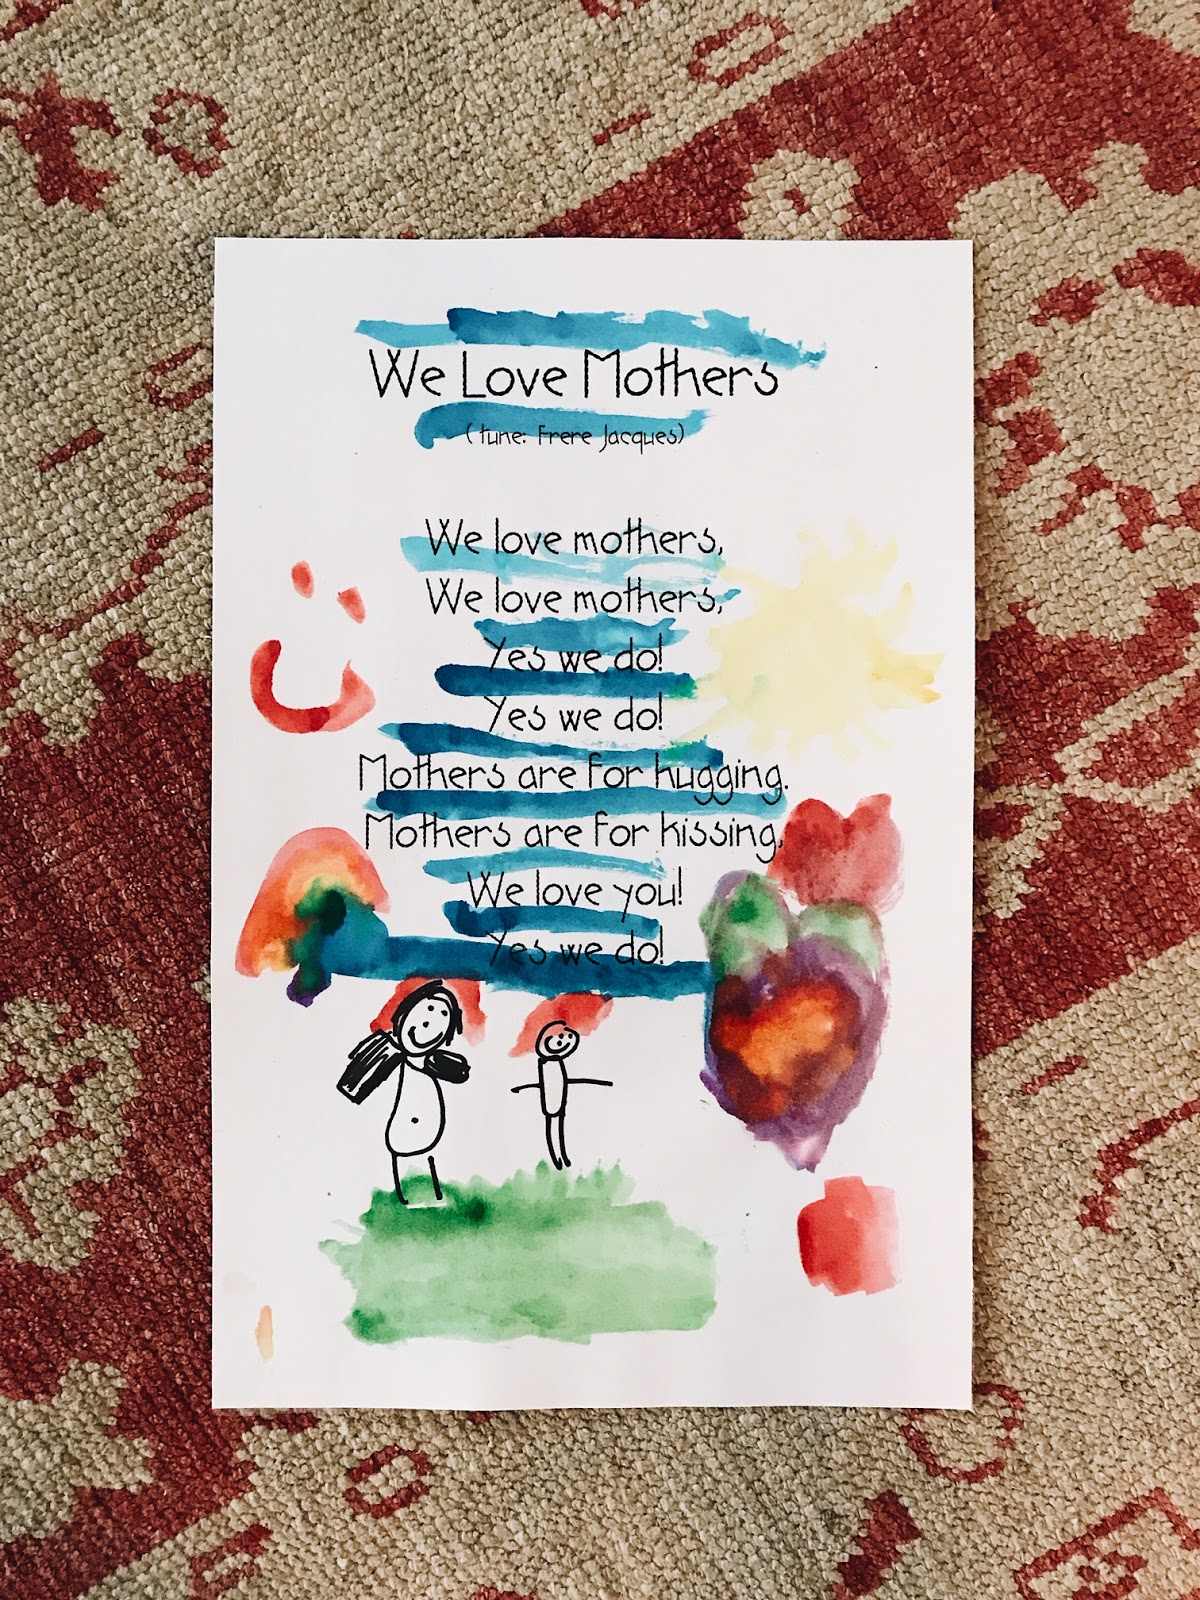 We Love Mothers
(tune: Frere Jacques)
We love mothers,
We love mothers,
Yes we do!
Yes we do!
Mothers are for hugging.
Mothers are for kissing,
We love you!
Yes we do!